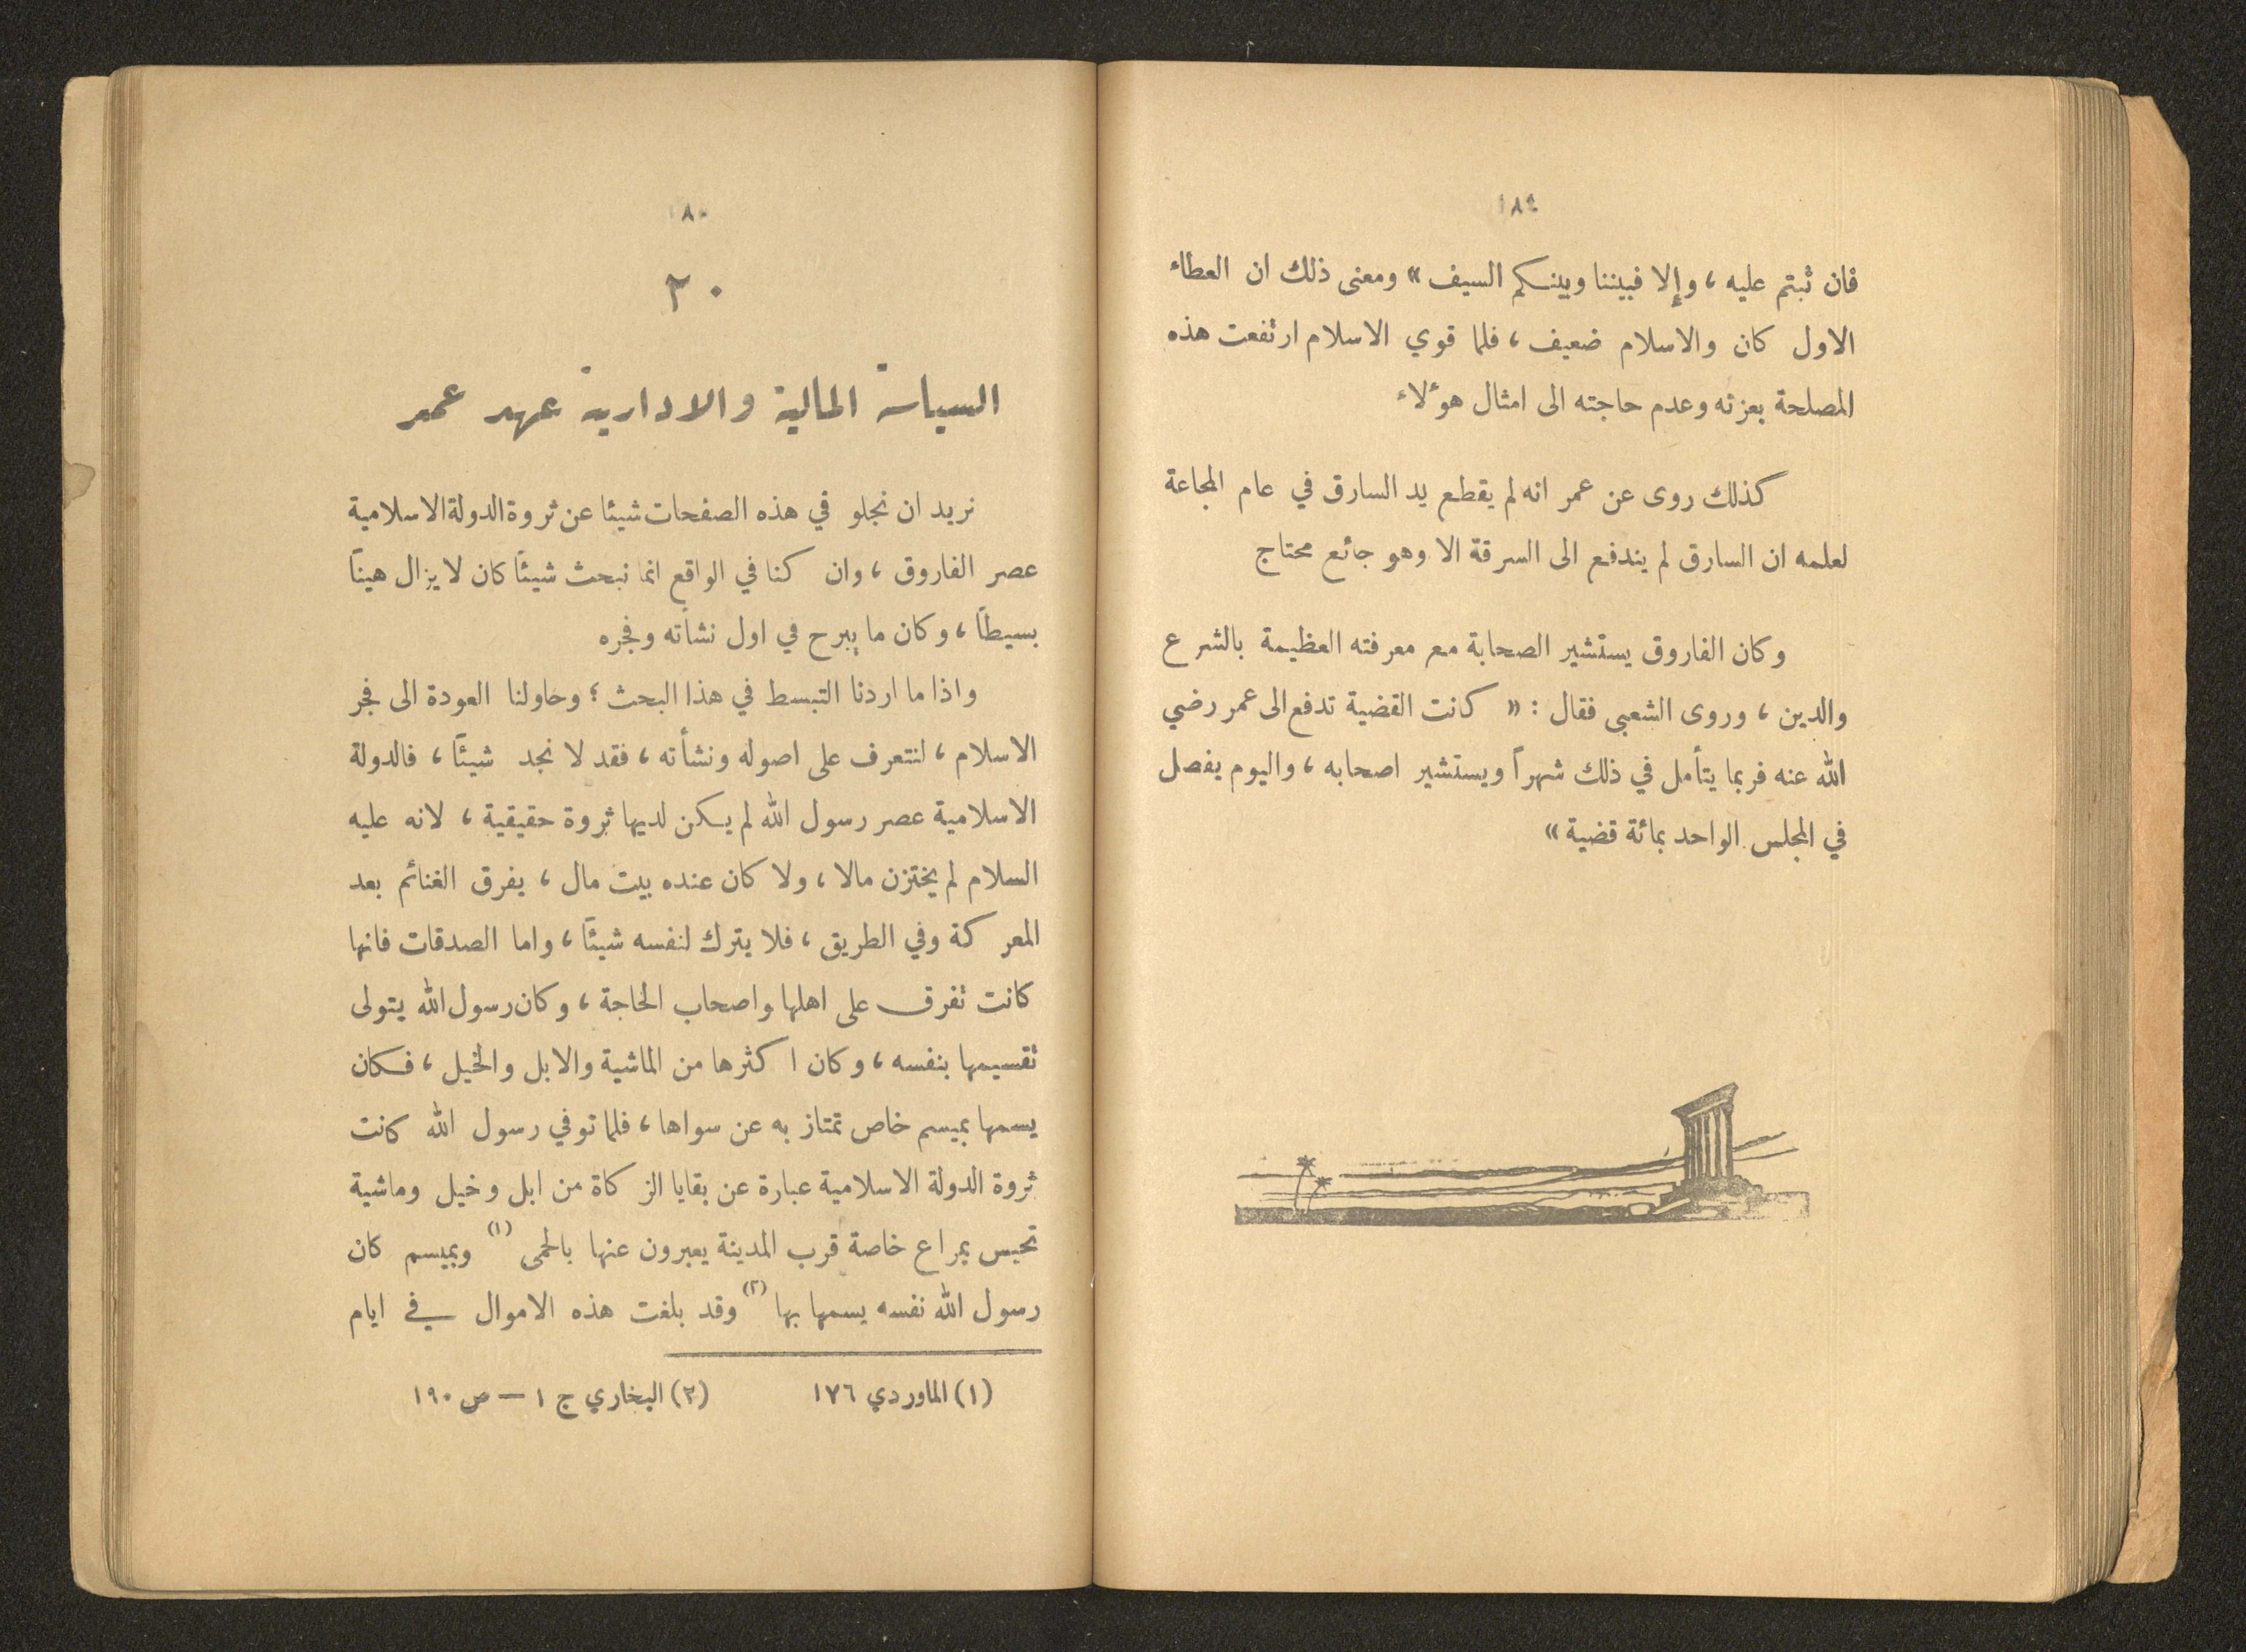 ١٨٤
فان ثبتم عليه، وإلا فبيننا وبينكم السيف» ومعنى ذلك ان العطاء
الاول كان والاسلام ضعيف، فلما قوي الاسلام ارتفعت هذه
المصلحة بعزته وعدم حاجته الى امثال هؤلاء
كذلك روى عن عمر انه لم يقطع يد السارق في عام المجاعة
لعلمه ان السارق لم يندفع الى السرقة الا وهو جائع محتاج
وكان الفاروق يستشير الصحابة مع معرفته العظيمة بالشرع
والدين، وروى الشعبي فقال: «كانت القضية تدفع الى عمر رضي
الله عنه فربما يتأمل في ذلك شهراً ويستشير اصحابه، واليوم يفصل
في المجلس الواحد بمائة قضية»
٢٠
السياسة المالية والادارية عهد عمر
نريد ان نجلو في هذه الصفحات شيئا عن ثروة الدولة الاسلامية
عصر الفاروق، وان كنا في الواقع انما نبحث شيئاً كان لا يزال هيناً
بسيطاً، وكان ما يبرح في اول نشأته وفجره
واذا ما اردنا التبسط في هذا البحث؛ وحاولنا العودة الى فجر
الاسلام، لنتعرف على اصوله ونشأته، فقد لا نجد شيئاً، فالدولة
الاسلامية عصر رسول الله لم يكن لديها ثروة حقيقية، لانه عليه
السلام لم يختزن مالا، ولا كان عنده بيت مال، يفرق الغنائم بعد
المعركة وفي الطريق، فلا يترك لنفسه شيئاً، واما الصدقات فانها
كانت تفرق على اهلها واصحاب الحاجة، وكان رسول الله يتولى
تقسيمها بنفسه، وكان اكثرها من الماشية والابل والخيل، فكان
يسمها بميسم خاص تمتاز به عن سواها، فلما توفي رسول الله كانت
ثروة الدولة الاسلامية عبارة عن بقايا الزكاة من ابل وخيل وماشية
تحبس بمراع خاصة قرب المدينة يعبرون عنها بالحمى (١) وبميسم كان
رسول الله نفسه يسمها بها (٢) وقد بلغت هذه الاموال في ايام
(١) الماوردي ١٧٦ (٢) البخاري ج ١ — ص ١٩٠